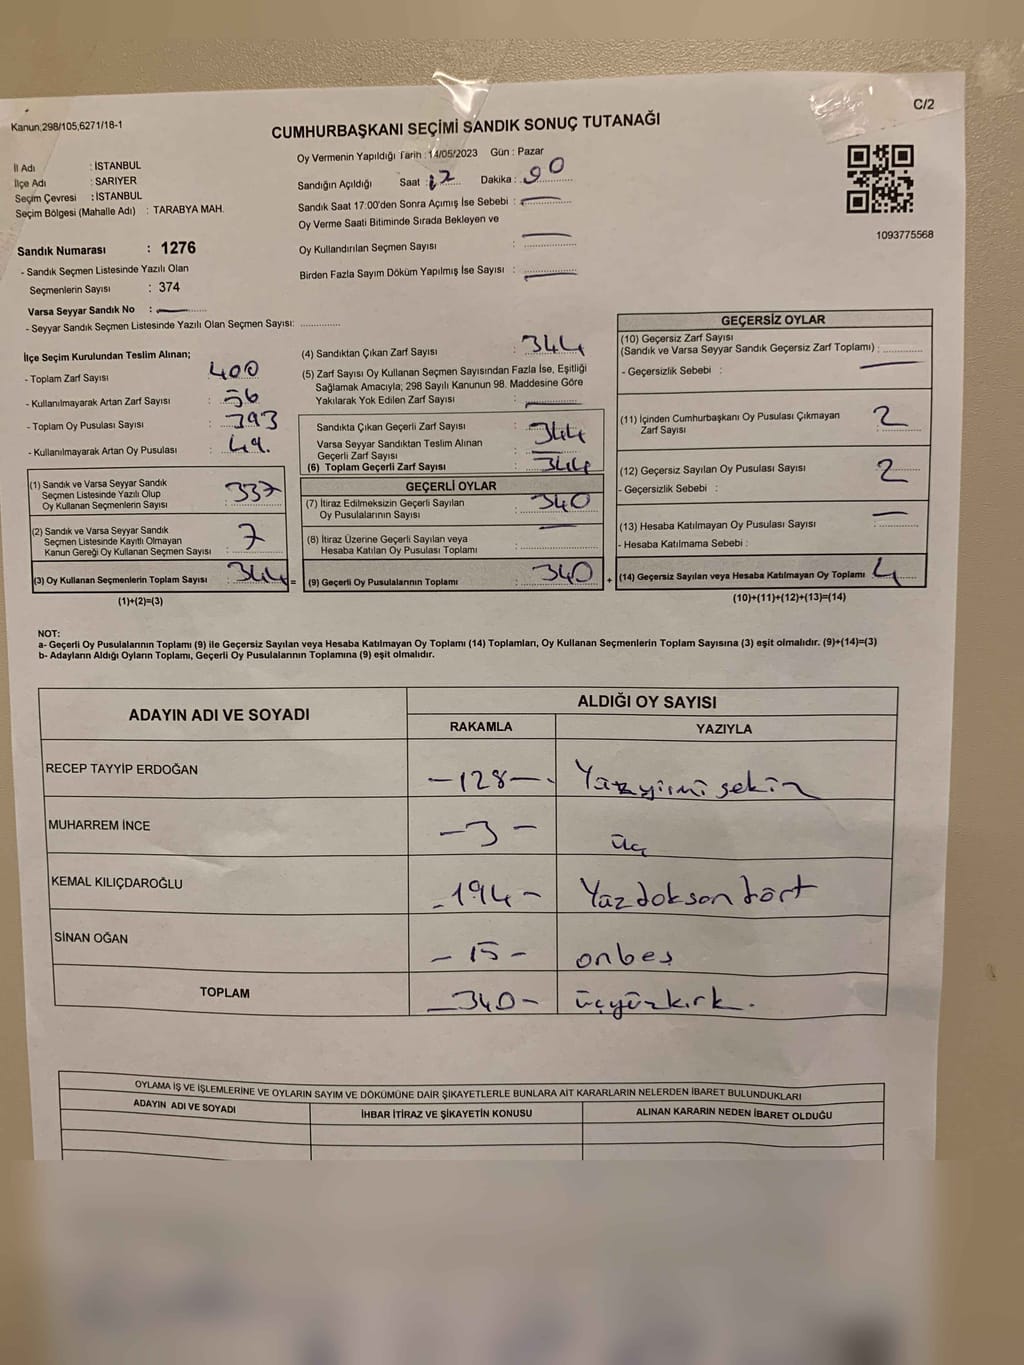 C/2
Kanun,298/105,6271/18-1
CUMHURBAŞKANI SEÇİMİ SANDIK SONUÇ TUTANAĞI
İl Adı : İSTANBUL
İlçe Adı : SARIYER
Seçim Çevresi : İSTANBUL
Seçim Bölgesi (Mahalle Adı) : TARABYA MAH.
Oy Vermenin Yapıldığı Tarih : 14/05/2023 Gün : Pazar
Sandığın Açıldığı Saat : 17 Dakika :
Sandık Saat 17:00'den Sonra Açımış İse Sebebi : —
Oy Verme Saati Bitiminde Sırada Bekleyen ve
Oy Kullandırılan Seçmen Sayısı : —
Birden Fazla Sayım Döküm Yapılmış İse Sayısı : —
1093775568
Sandık Numarası : 1276
- Sandık Seçmen Listesinde Yazılı Olan
Seçmenlerin Sayısı : 374
Varsa Seyyar Sandık No : —
- Seyyar Sandık Seçmen Listesinde Yazılı Olan Seçmen Sayısı: ..............
İlçe Seçim Kurulundan Teslim Alınan;
- Toplam Zarf Sayısı : 400
- Kullanılmayarak Artan Zarf Sayısı : 56
- Toplam Oy Pusulası Sayısı : 393
- Kullanılmayarak Artan Oy Pusulası : 49.
(1) Sandık ve Varsa Seyyar Sandık
Seçmen Listesinde Yazılı Olup
Oy Kullanan Seçmenlerin Sayısı : 337
(2) Sandık ve Varsa Seyyar Sandık
Seçmen Listesinde Kayıtlı Olmayan
Kanun Gereği Oy Kullanan Seçmen Sayısı : 7
(3) Oy Kullanan Seçmenlerin Toplam Sayısı : 344 =
(1)+(2)=(3)
(4) Sandıktan Çıkan Zarf Sayısı : 344
(5) Zarf Sayısı Oy Kullanan Seçmen Sayısından Fazla İse, Eşitliği
Sağlamak Amacıyla; 298 Sayılı Kanunun 98. Maddesine Göre
Yakılarak Yok Edilen Zarf Sayısı : —
Sandıkta Çıkan Geçerli Zarf Sayısı : 344
Varsa Seyyar Sandıktan Teslim Alınan
Geçerli Zarf Sayısı : —
(6) Toplam Geçerli Zarf Sayısı : 344
GEÇERLİ OYLAR
(7) İtiraz Edilmeksizin Geçerli Sayılan
Oy Pusulalarının Sayısı : 340
(8) İtiraz Üzerine Geçerli Sayılan veya
Hesaba Katılan Oy Pusulası Toplamı : —
(9) Geçerli Oy Pusulalarının Toplamı : 340 +
GEÇERSİZ OYLAR
(10) Geçersiz Zarf Sayısı
(Sandık ve Varsa Seyyar Sandık Geçersiz Zarf Toplamı) : ..............
- Geçersizlik Sebebi : —
(11) İçinden Cumhurbaşkanı Oy Pusulası Çıkmayan
Zarf Sayısı : 2
(12) Geçersiz Sayılan Oy Pusulası Sayısı : 2
- Geçersizlik Sebebi :
(13) Hesaba Katılmayan Oy Pusulası Sayısı : —
- Hesaba Katılmama Sebebi :
(14) Geçersiz Sayılan veya Hesaba Katılmayan Oy Toplamı : 4
(10)+(11)+(12)+(13)=(14)
NOT:
a- Geçerli Oy Pusulalarının Toplamı (9) ile Geçersiz Sayılan veya Hesaba Katılmayan Oy Toplamı (14) Toplamları, Oy Kullanan Seçmenlerin Toplam Sayısına (3) eşit olmalıdır. (9)+(14)=(3)
b- Adayların Aldığı Oyların Toplamı, Geçerli Oy Pusulalarının Toplamına (9) eşit olmalıdır.
ADAYIN ADI VE SOYADI ALDIĞI OY SAYISI
RAKAMLA YAZIYLA
RECEP TAYYİP ERDOĞAN -128- Yüzyirmi sekiz
MUHARREM İNCE -3- üç
KEMAL KILIÇDAROĞLU -194- Yüzdoksan dört
SİNAN OĞAN -15- onbeş
TOPLAM -340- üçyüzkırk.
OYLAMA İŞ VE İŞLEMLERİNE VE OYLARIN SAYIM VE DÖKÜMÜNE DAİR ŞİKAYETLERLE BUNLARA AİT KARARLARIN NELERDEN İBARET BULUNDUKLARI
ADAYIN ADI VE SOYADI İHBAR İTİRAZ VE ŞİKAYETİN KONUSU ALINAN KARARIN NEDEN İBARET OLDUĞU